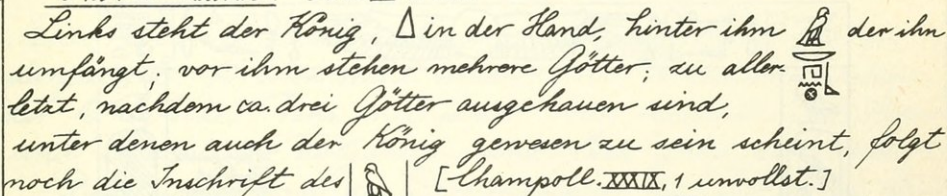 Links steht der König, in der Hand, hinter ihm der ihn
umfängt; vor ihm stehen mehrere Götter; zu aller-
letzt, nachdem ca. drei Götter ausgehauen sind,
unter denen auch der König gewesen zu sein scheint, folgt
noch die Inschrift des [Champoll. XXXIX, 1 unvollst.]